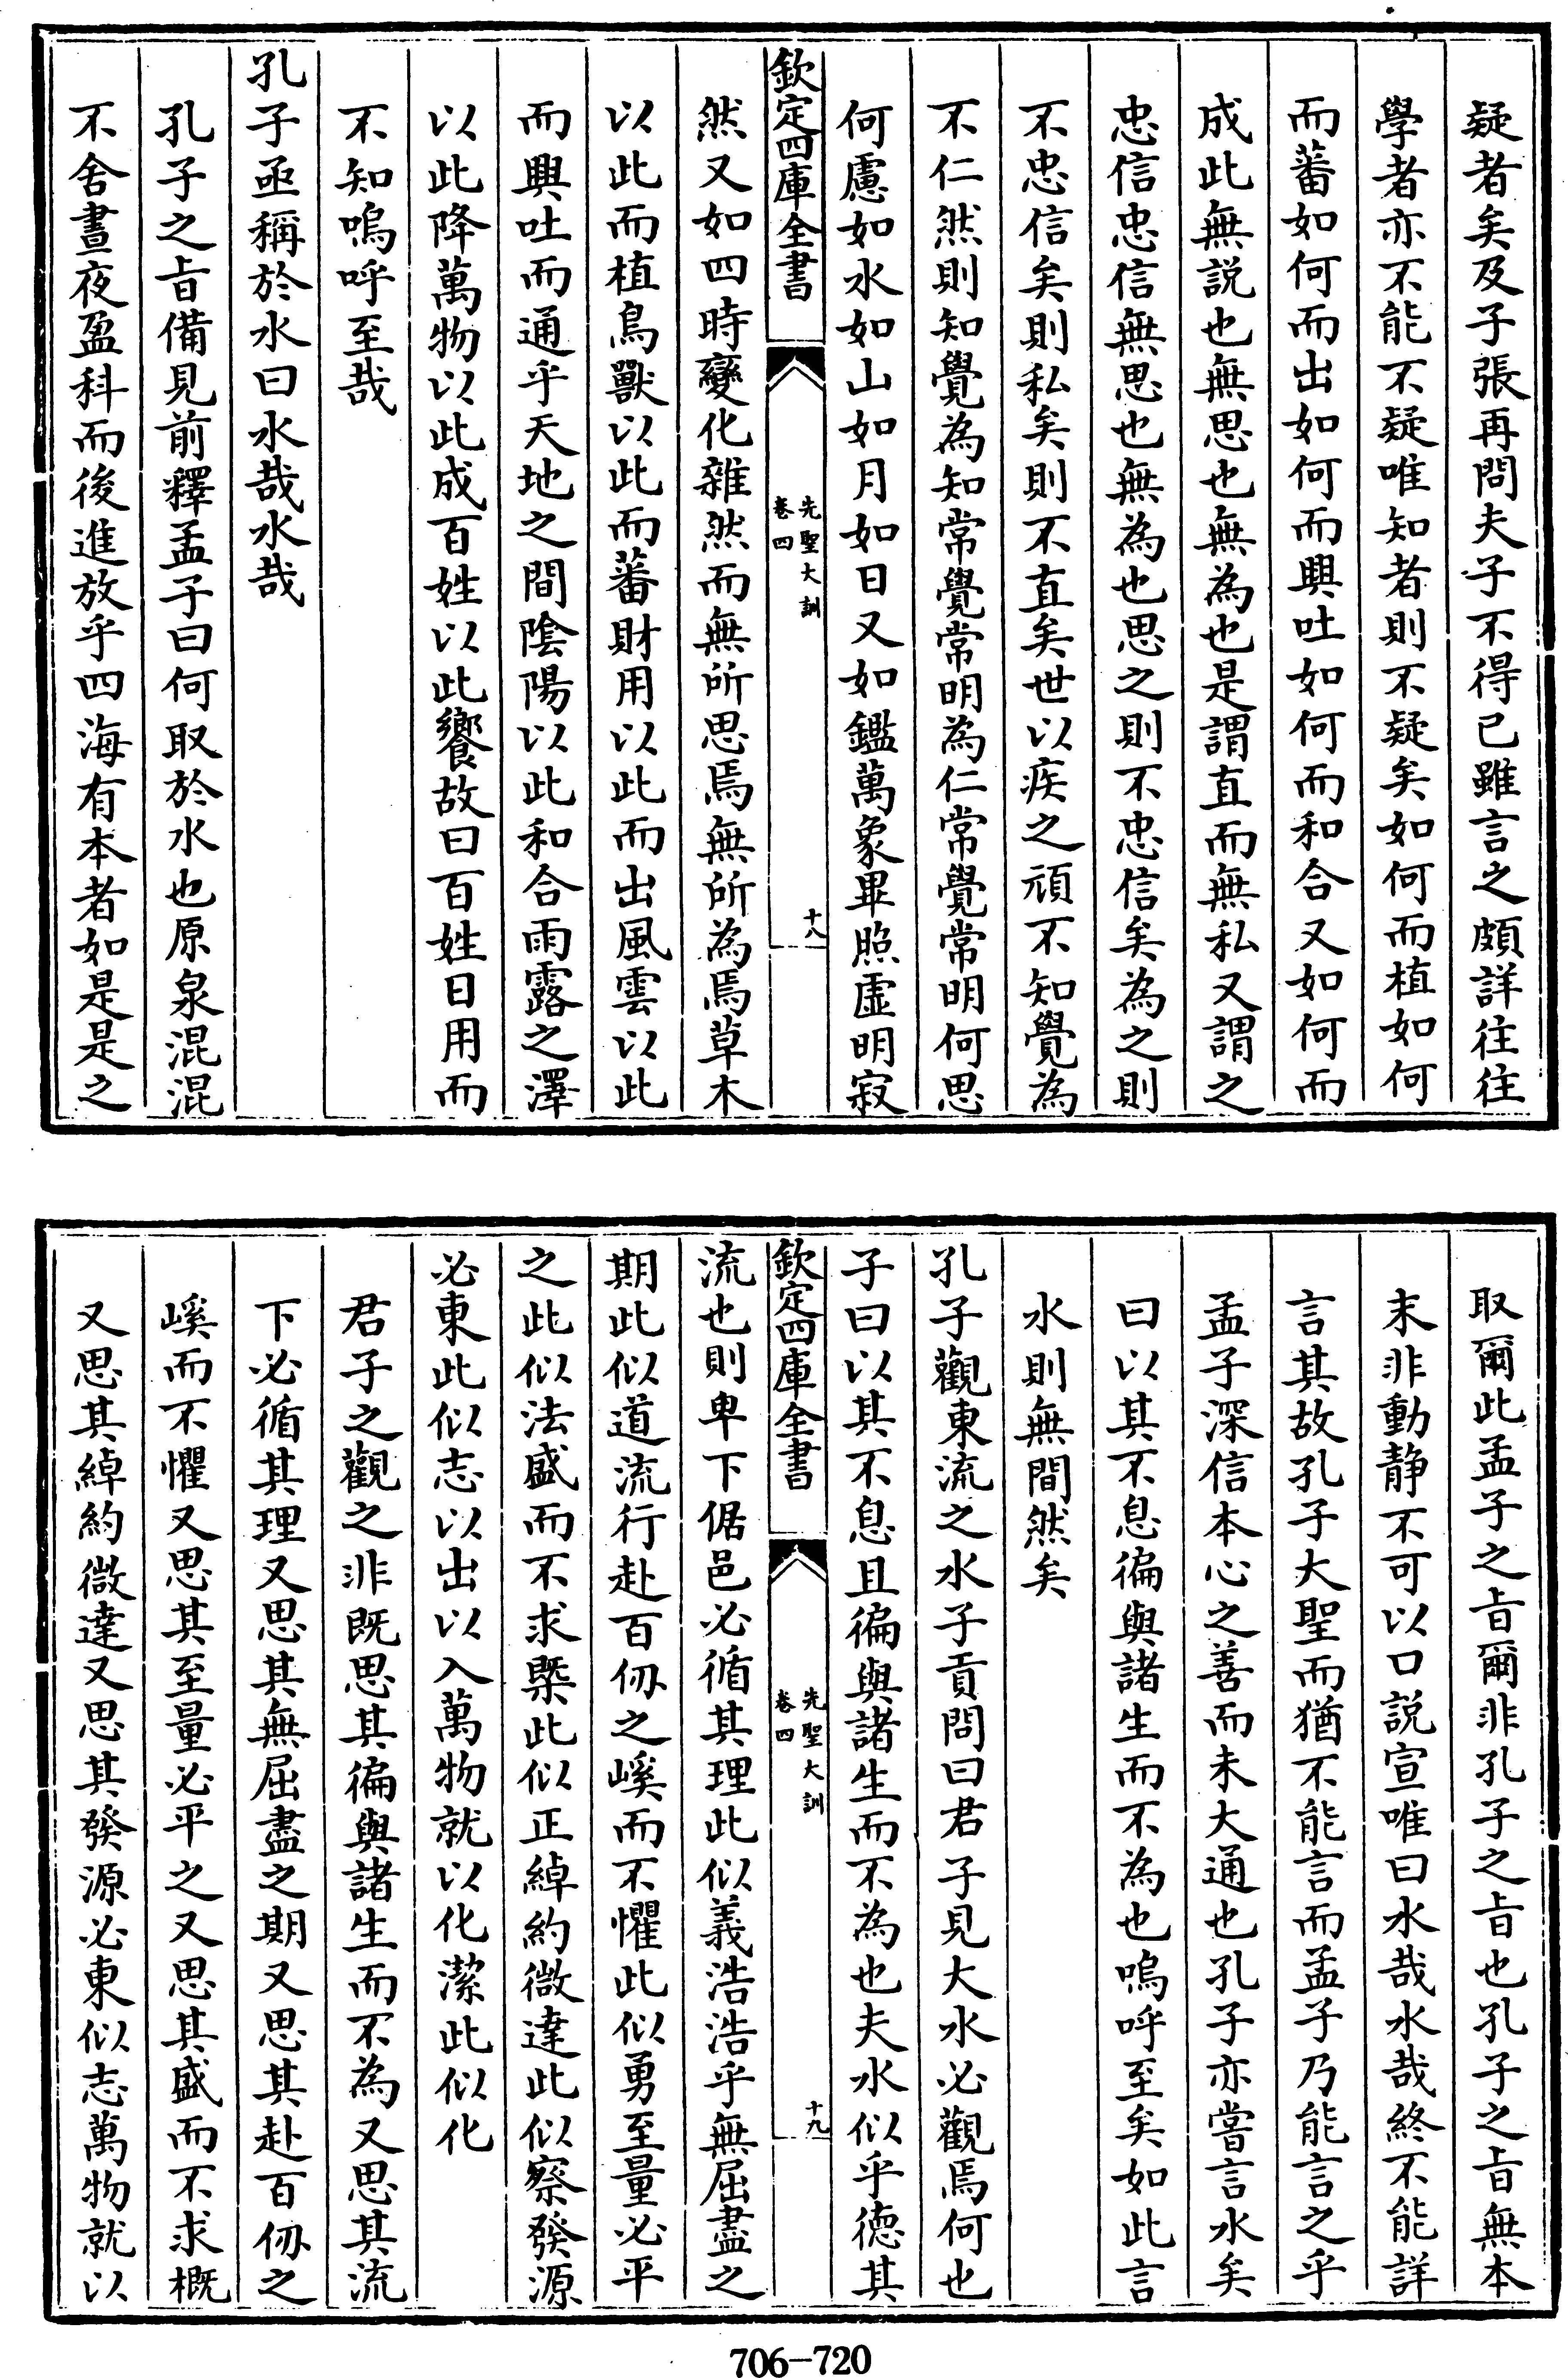 疑者矣及子張再問夫子不得已雖言之頗詳往往
學者亦不能不疑唯知者則不疑矣如何而植如何
而蕃如何而出如何而興吐如何而和合又如何而
成此無説也無思也無為也是謂直而無私又謂之
忠信忠信無思也無為也思之則不忠信矣為之則
不忠信矣則私矣則不直矣世以疾之頑不知覺為
不仁然則知覺為知常覺常明為仁常覺常明何思
何慮如水如山如月如日又如鑑萬象畢照虚明寂
欽定四庫全書
先聖大訓
卷四
十八
然又如四時變化雜然而無所思焉無所為焉草木
以此而植鳥獸以此而蕃財用以此而出風雲以此
而興吐而通乎天地之間陰陽以此和合雨露之澤
以此降萬物以此成百姓以此饗故曰百姓日用而
不知嗚呼至哉
孔子亟稱於水曰水哉水哉
孔子之㫖備見前釋孟子曰何取於水也原泉混混
不舍晝夜盈科而後進放乎四海有本者如是是之
取爾此孟子之㫖爾非孔子之㫖也孔子之㫖無本
末非動静不可以口説宣唯曰水哉水哉終不能詳
言其故孔子大聖而猶不能言而孟子乃能言之乎
孟子深信本心之善而未大通也孔子亦嘗言水矣
曰以其不息徧與諸生而不為也嗚呼至矣如此言
水則無間然矣
孔子觀東流之水子貢問曰君子見大水必觀焉何也
子曰以其不息且徧與諸生而不為也夫水似乎德其
欽定四庫全書
先聖大訓
卷四
十九
流也則卑下倨邑必循其理此似義浩浩乎無屈盡之
期此似道流行赴百仭之嵠而不懼此似勇至量必平
之此似法盛而不求槩此似正綽約微達此似察發源
必東此似志以出以入萬物就以化潔此似化
君子之觀之非既思其徧與諸生而不為又思其流
下必循其理又思其無屈盡之期又思其赴百仭之
嵠而不懼又思其至量必平之又思其盛而不求概
又思其綽約微達又思其發源必東似志萬物就以
706-720